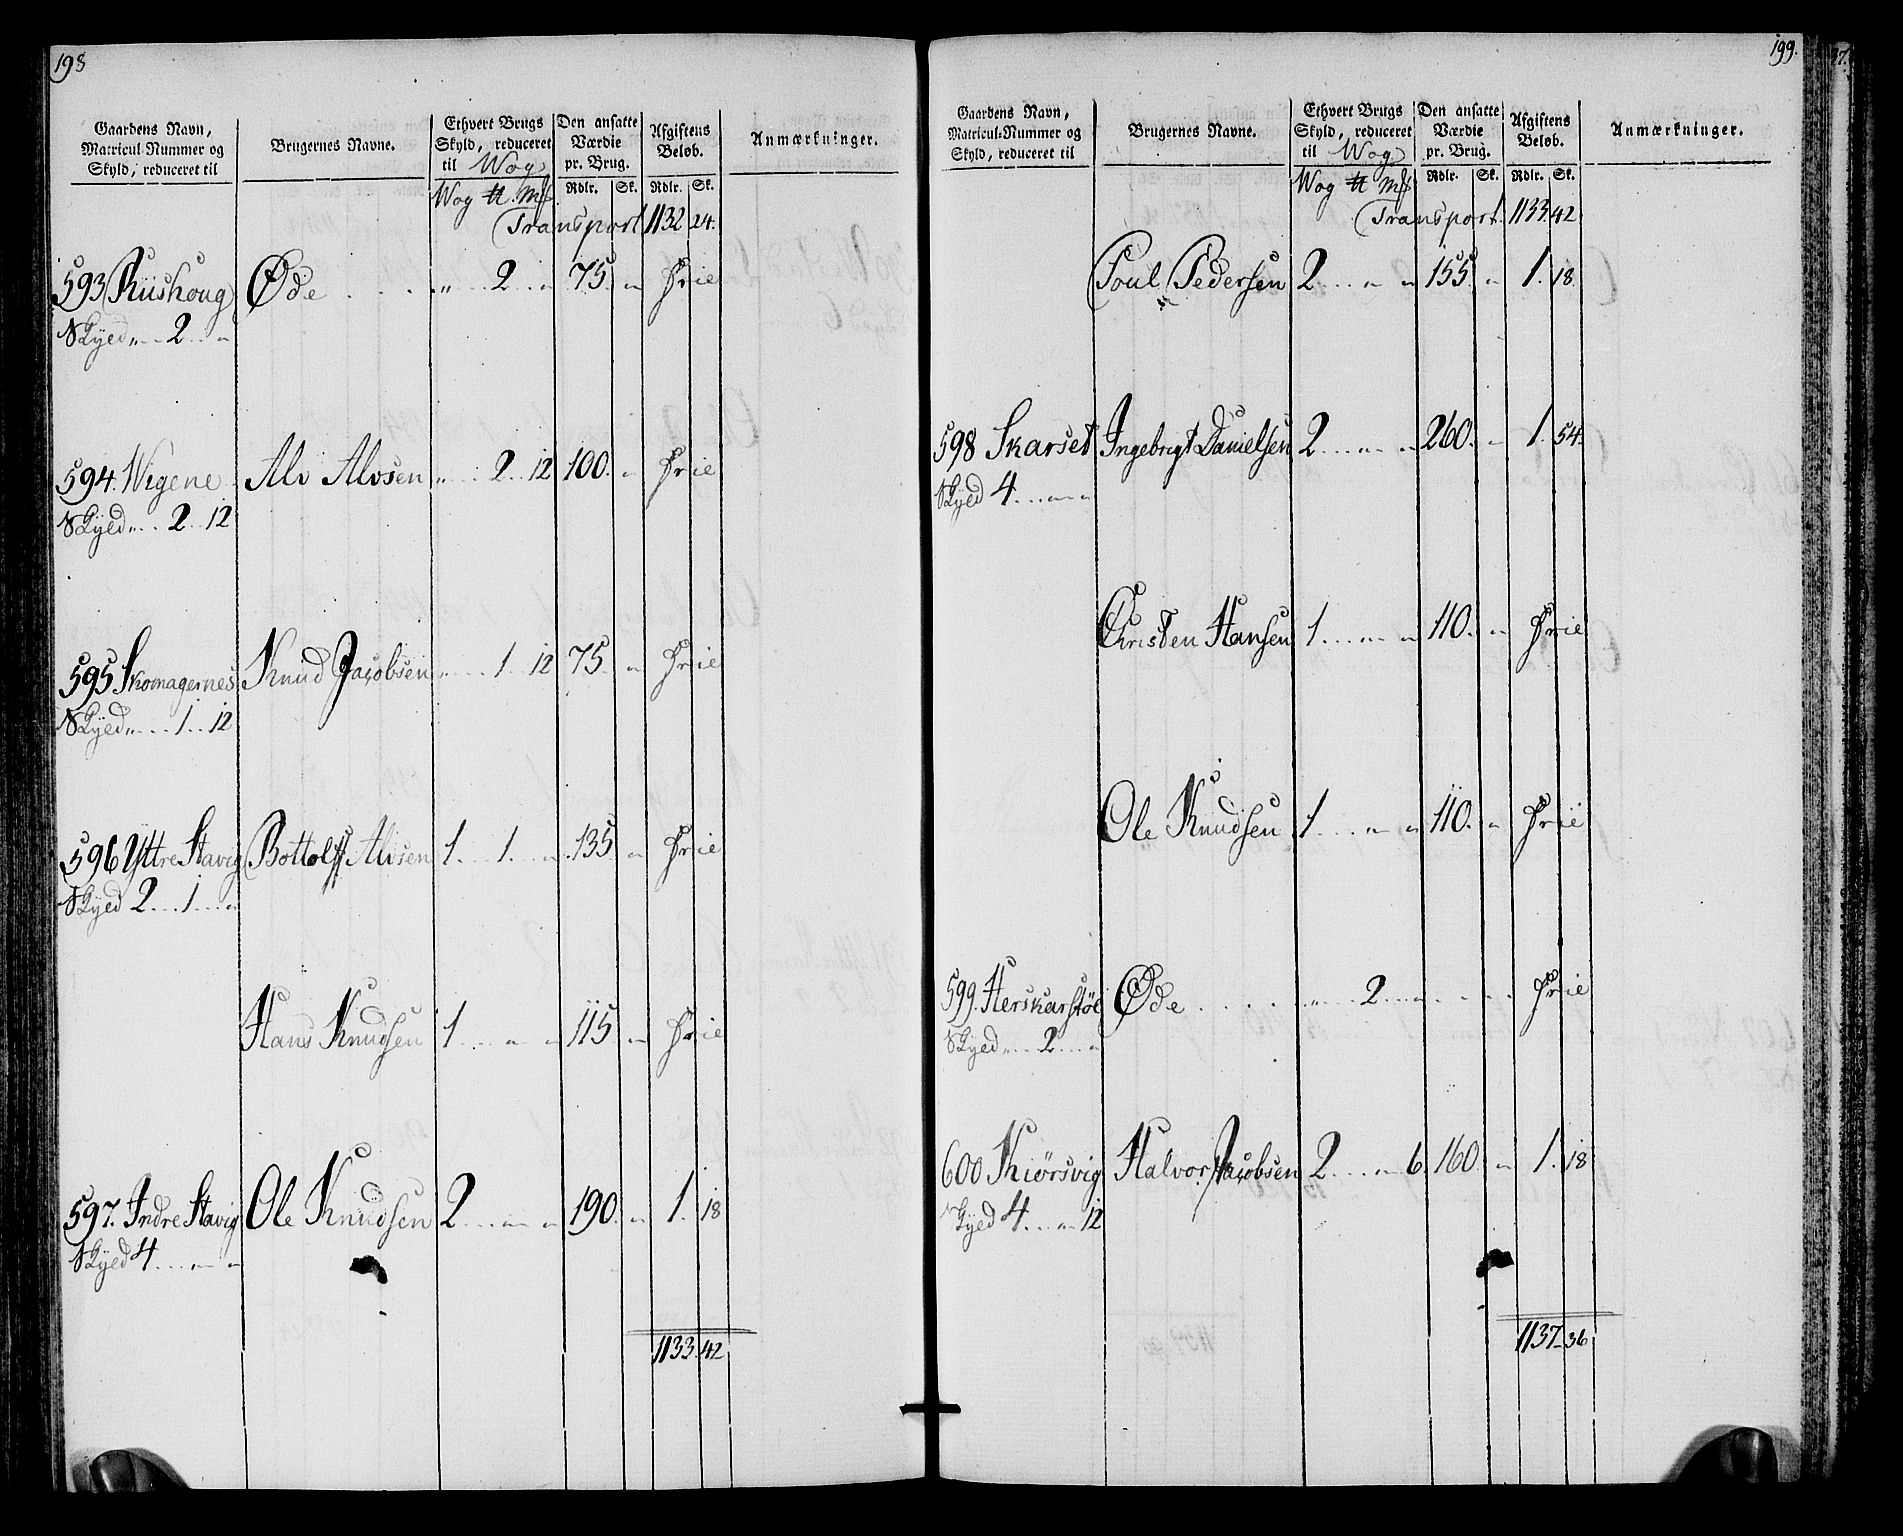 198
Gaardens Navn, Matricul-Nummer og Skyld, reduceret til
Brugernes Navne.
Ethvert Brugs Skyld, reduceret til Wog
Den ansatte Værdie pr. Brug.
Afgiftens Beløb.
Anmærkninger.
Wog ℔ Mk. Rdlr. Sk. Rdlr. Sk.
Transport 1132 24.
593 Riishoug Øde . . . „ . . 2 . „ 75. „ Frie
Skyed „ . . 2 . . „
594. Wigene Alv Alvsen „ . . . 2 . . 12 100. „ Frie
Skyed „ . . 2 . . 12
595 Skomagernes Knud Jacobsen „ . . . 1 . . 12 75. „ Frie
Skyed „ . . . 1 . . 12
596 Yttre Stavig Bottolff Alvsen 1 . . . 1 . . . „ 135 „ Frie
Skyed 2 . . . 1 . . . „
Hans Knudsen 1 . . . „ . „ 115 „ Frie
597. Indre Stavig Ole Knudsen 2 . . . „ . „ 190. „ 1. 18
Skyed 4 . . . „ . „
1133. 42
199.
Gaardens Navn, Matricul-Nummer og Skyld, reduceret til
Brugernes Navne.
Ethvert Brugs Skyld, reduceret til Wog
Den ansatte Værdie pr. Brug.
Afgiftens Beløb.
Anmærkninger.
Wog ℔ Mk. Rdlr. Sk. Rdlr. Sk.
Transport. 1133. 42
Poul Pedersen 2 . . . „ . „ 155. „ 1. 18
598 Skarset Ingebrigt Danielsen 2 . . . „ . „ 260. „ 1. 54.
Skyed 4 . . . „ . „
Christen Hansen 1 . . . „ . „ 110. „ Frie
Ole Knudsen 1 . . . „ . „ 110. „ Frie
599. Herskarstøl Øde . . . „ . . 2 . . . „ . . . Frie
Skyed „ . . 2 . . . „
600 Kiørsvig Halvor Jacobsen 2 . . . „ 6. 160. „ 1. 18
Skyed 4 . . „ 12
1137. 36